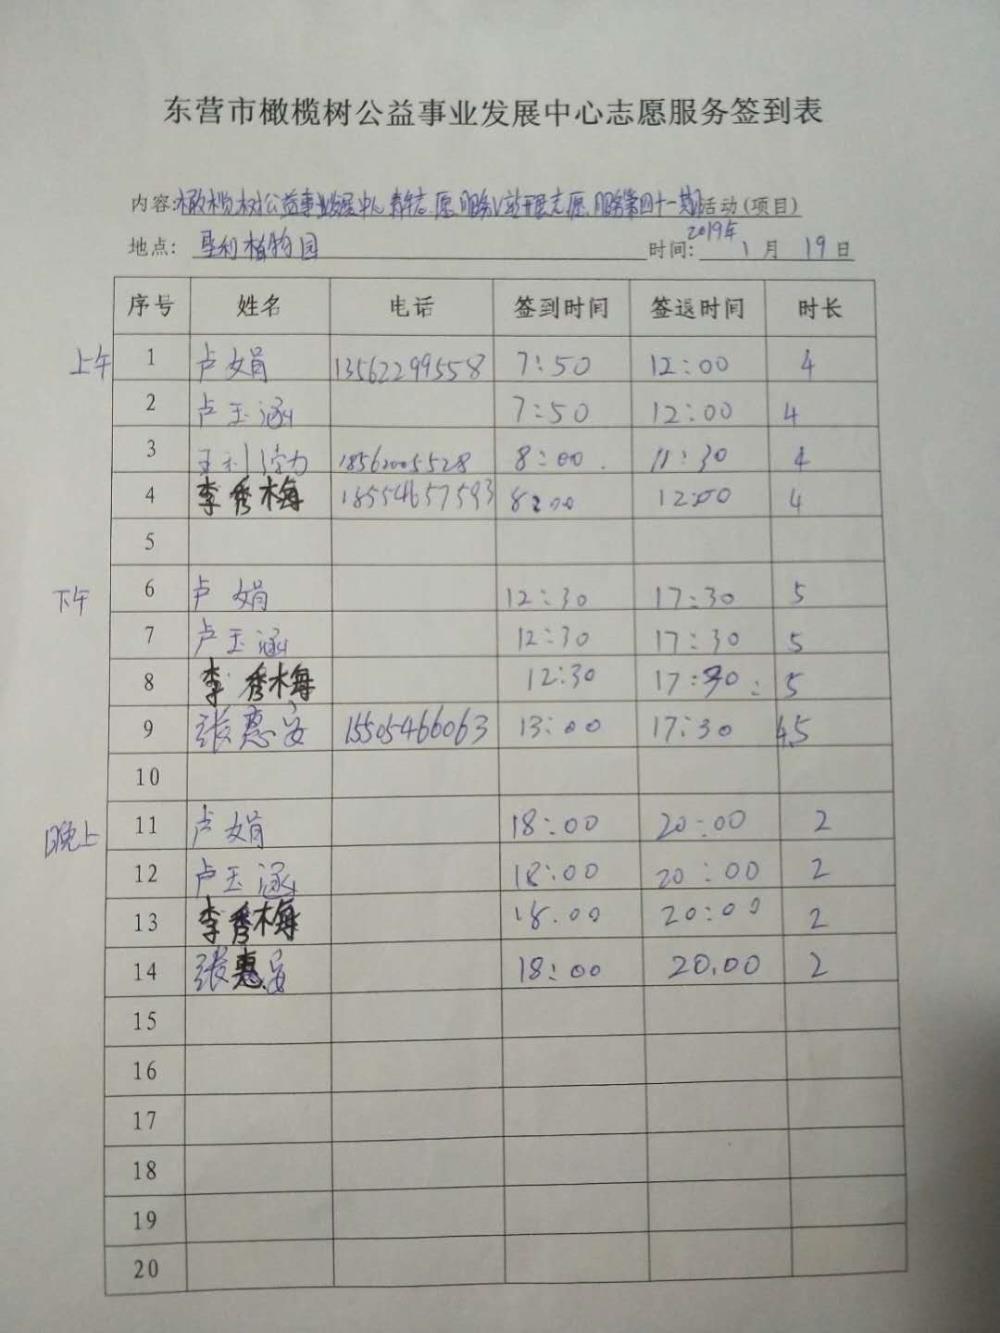 东营市橄榄树公益事业发展中心志愿服务签到表
内容:橄榄树公益事业发展中心青年志愿服务V站开展志愿服务第四十一期活动(项目)
地点: 垦利植物园 时间: 2019年 1 月 19 日
序号 姓名 电话 签到时间 签退时间 时长
上午 1 卢娟 13562299558 7:50 12:00 4
2 卢玉涵 7:50 12:00 4
3 18562005528 8:00 11:30 4
4 李秀梅 18554657593 8:00 12:00 4
5
下午 6 卢娟 12:30 17:30 5
7 卢玉涵 12:30 17:30 5
8 李秀梅 12:30 17:30 5
9 张惠安 15505466063 13:00 17:30 4.5
10
晚上 11 卢娟 18:00 20:00 2
12 卢玉涵 18:00 20:00 2
13 李秀梅 18.00 20:00 2
14 张惠安 18:00 20.00 2
15
16
17
18
19
20